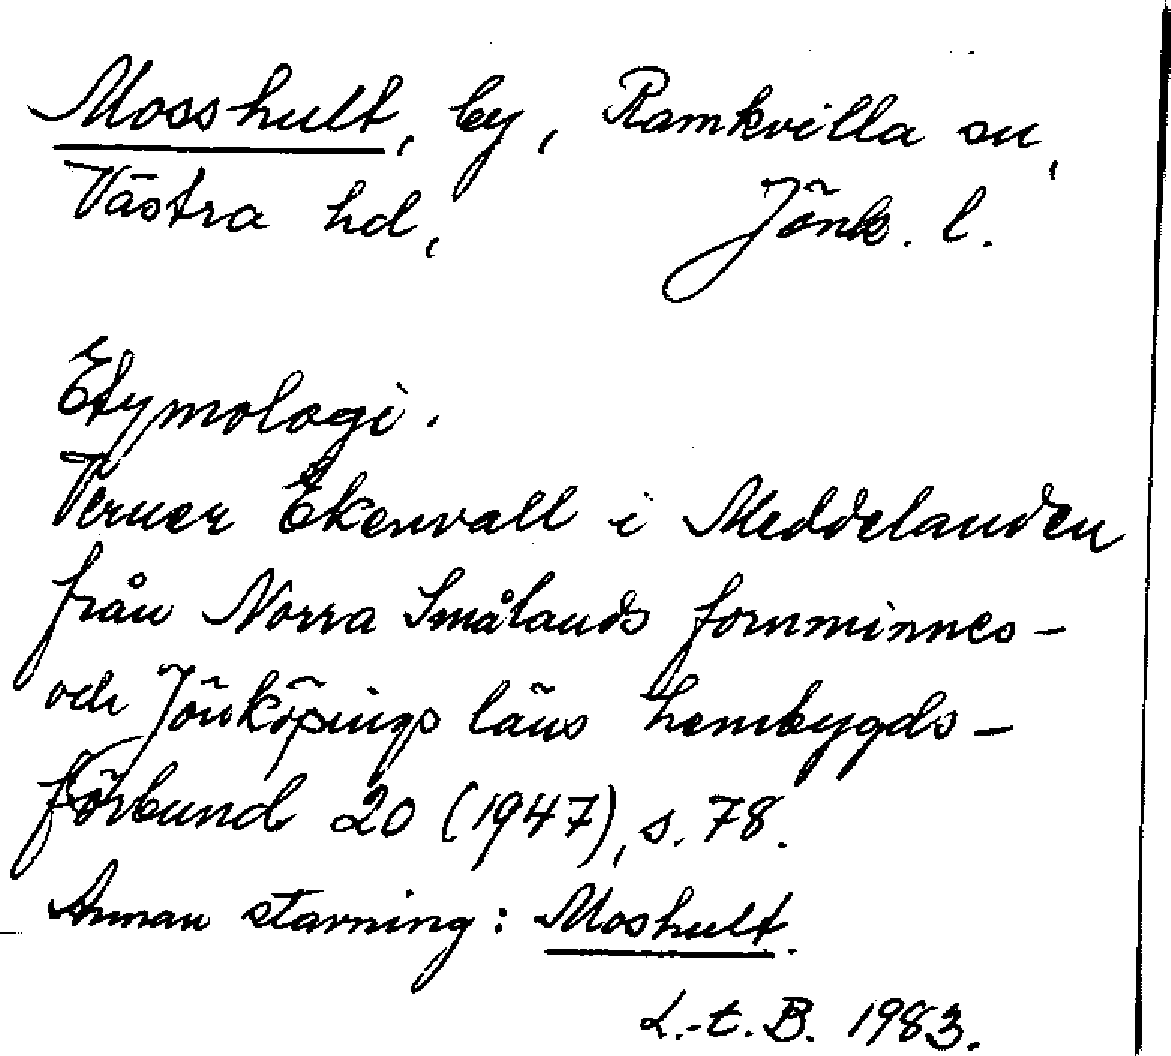 Mosshult, by, Ramkvilla sn,
Västra hd, Jönk. l.
Etymologi.
Verner Ekenvall i Meddelanden
från Norra Smålands fornminnes-
och Jönköpings läns hembygds-
förbund 20 (1947), s. 78.
Annan stavning: Moshult.
L.-t. B. 1983.